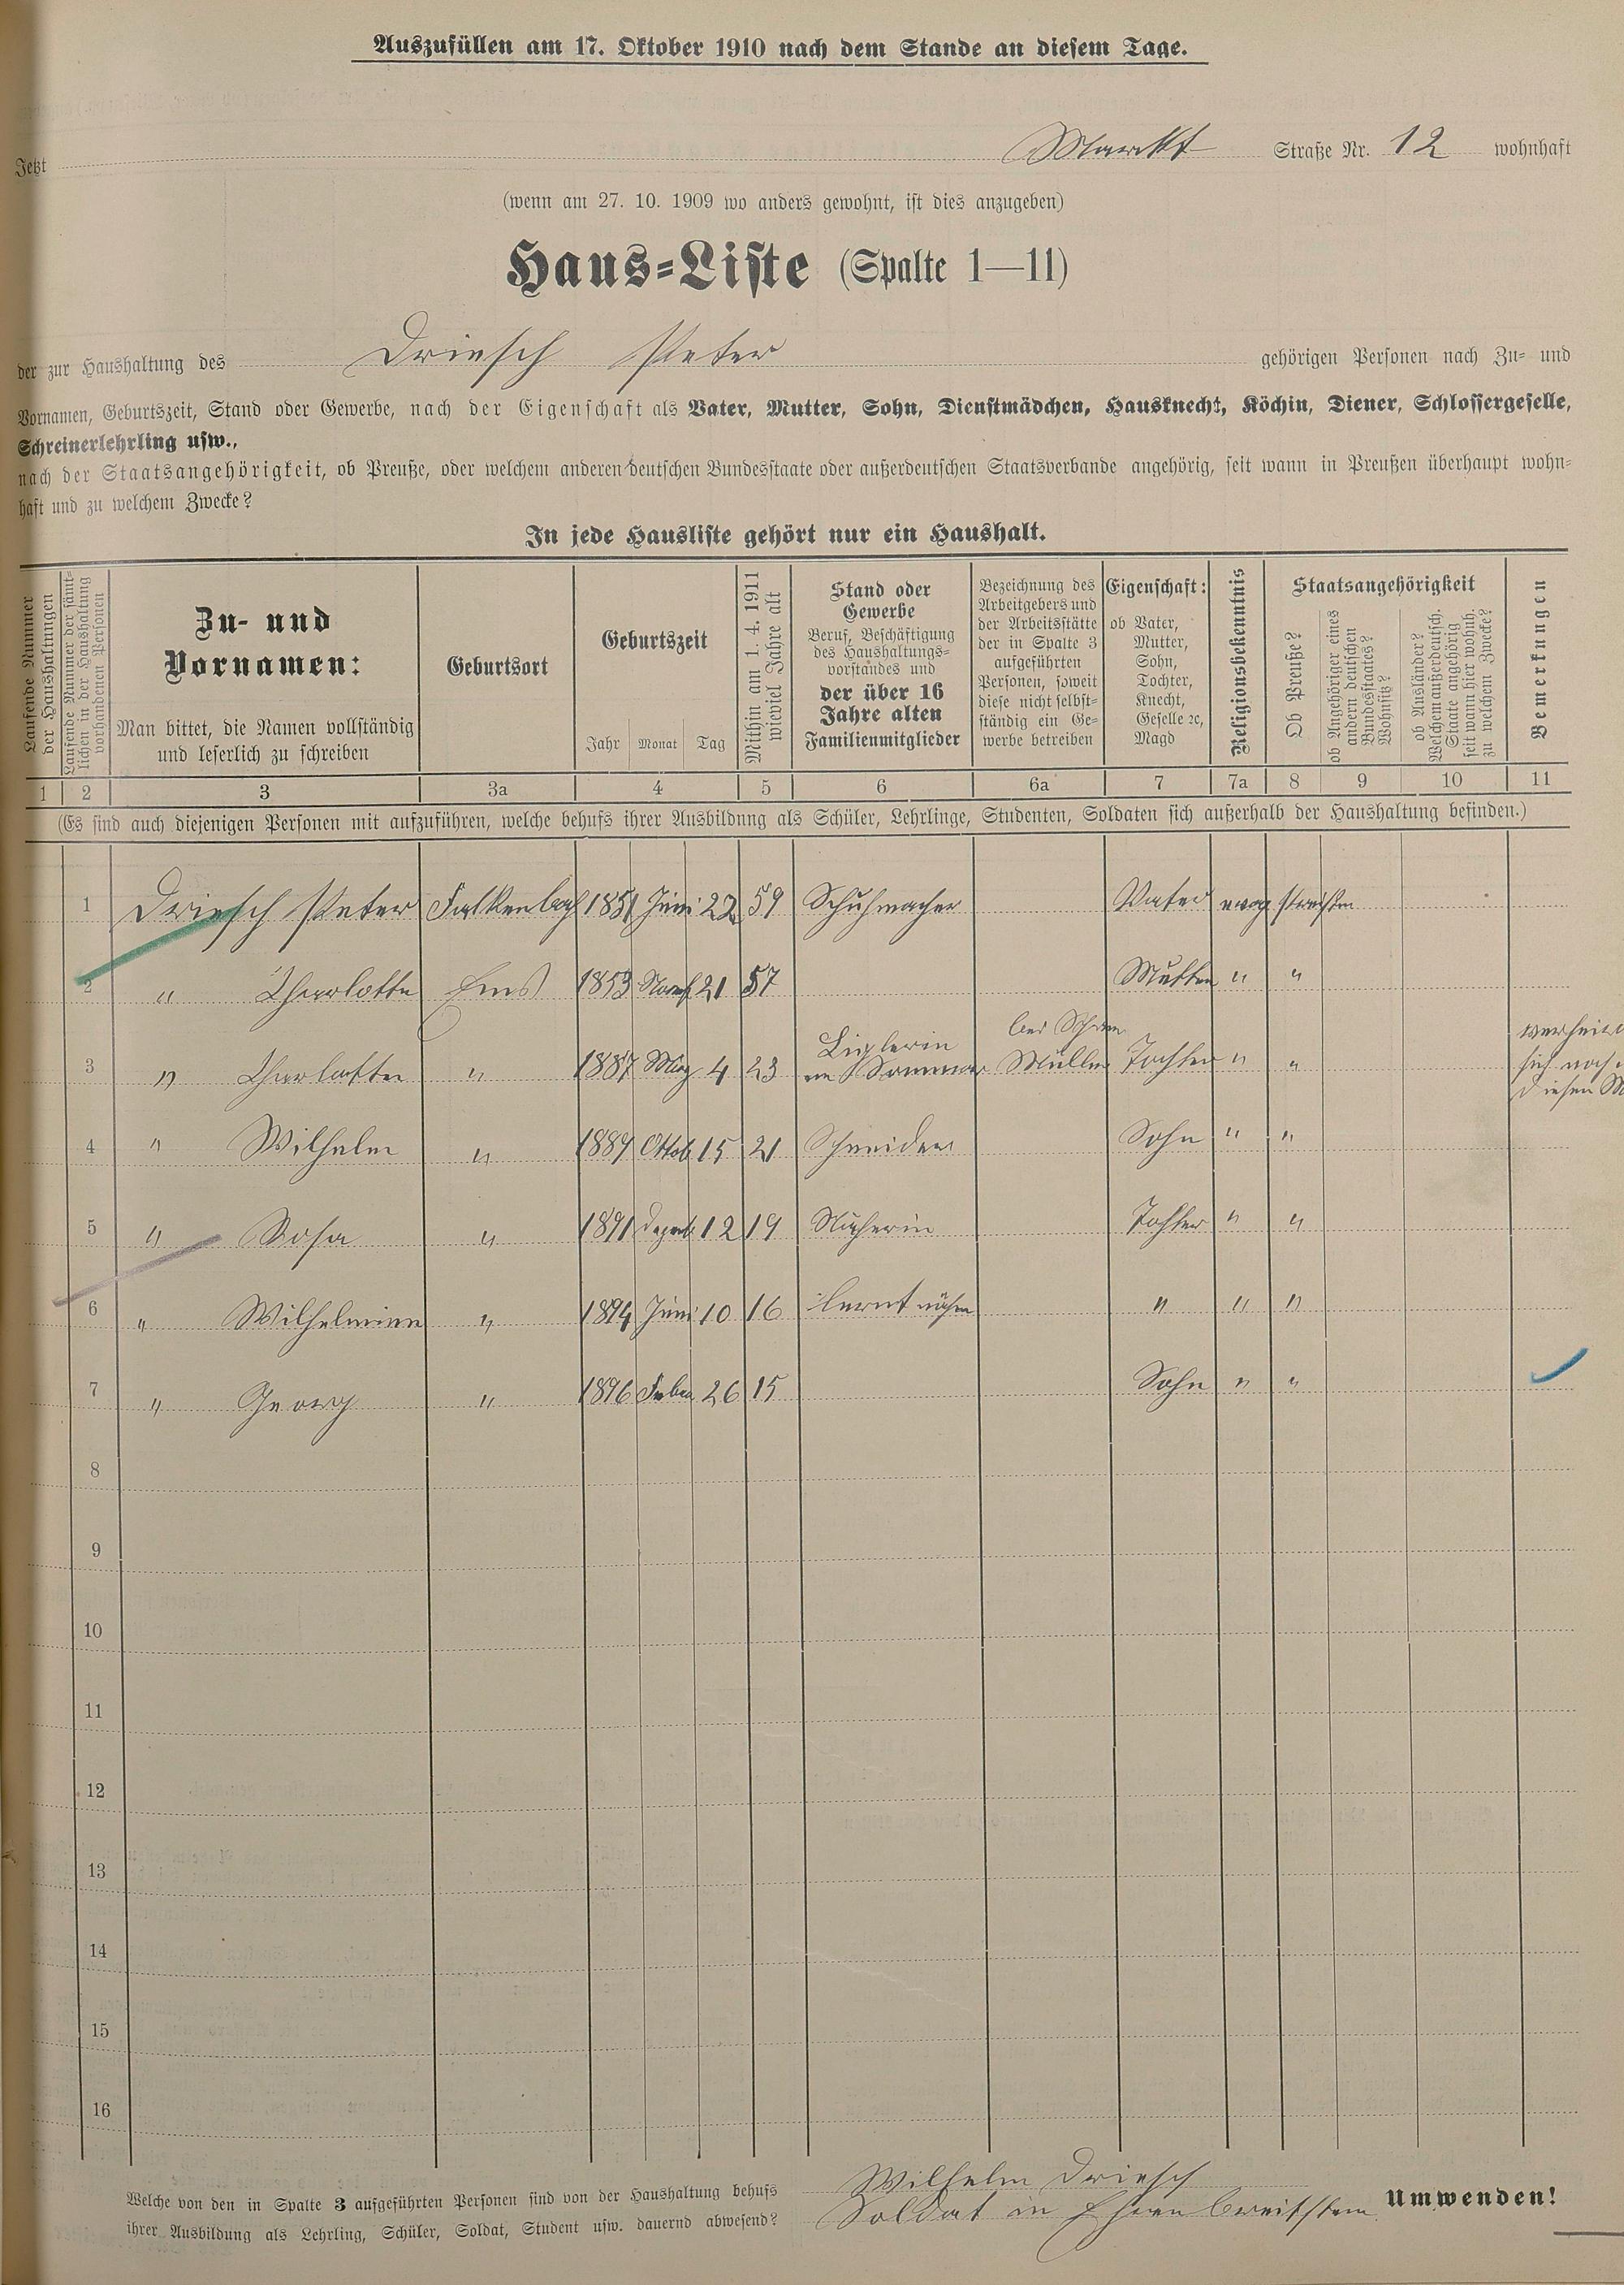 Auszufüllen am 17. Oktober 1910 nach dem Stande an diesem Tage.
Jetzt Markt Straße Nr. 12 wohnhaft
(wenn am 27. 10. 1909 wo anders gewohnt, ist dies anzugeben)
Haus-Liste (Spalte 1—11)
der zur Haushaltung des Driesch Peter gehörigen Personen nach Zu- und
Vornamen, Geburtszeit, Stand oder Gewerbe, nach der Eigenschaft als Vater, Mutter, Sohn, Dienstmädchen, Hausknecht, Köchin, Diener, Schlossergeselle,
Schreinerlehrling usw.,
nach der Staatsangehörigkeit, ob Preuße, oder welchem anderen deutschen Bundesstaate oder außerdeutschen Staatsverbande angehörig, seit wann in Preußen überhaupt wohn-
haft und zu welchem Zwecke?
In jede Hausliste gehört nur ein Haushalt.
Laufende Nummer der Haushaltungen
Laufende Nummer der sämtlichen in der Haushaltung vorhandenen Personen
Zu- und
Vornamen:
Man bittet, die Namen vollständig
und leserlich zu schreiben
Geburtsort
Geburtszeit
Jahr Monat Tag
Mithin am 1. 4. 1911 wieviel Jahre alt
Stand oder
Gewerbe
Beruf, Beschäftigung
des Haushaltungs-
vorstandes und
der über 16
Jahre alten
Familienmitglieder
Bezeichnung des
Arbeitgebers und
der Arbeitsstätte
der in Spalte 3
aufgeführten
Personen, soweit
diese nicht selbst-
ständig ein Ge-
werbe betreiben
Eigenschaft:
ob Vater,
Mutter,
Sohn,
Tochter,
Knecht,
Geselle ec,
Magd
Religionsbekenntnis
Staatsangehörigkeit
Ob Preuße?
ob Angehöriger eines andern deutschen Bundesstaates? Wohnsitz?
ob Ausländer? Welchem außerdeutsch. Staate angehörig seit wann hier wohnh. zu welchem Zwecke?
Bemerkungen
1 2 3 3a 4 5 6 6a 7 7a 8 9 10 11
(Es sind auch diejenigen Personen mit aufzuführen, welche behufs ihrer Ausbildung als Schüler, Lehrlinge, Studenten, Soldaten sich außerhalb der Haushaltung befinden.)
1 Driesch Peter Falkenbach 1851 Juni 22 59 Schuhmacher Vater evag
2 " Charlotte Ems 1853 Novb 21 57 Mutter " "
bei Schrn
Büglerin
3 " Charlotte " 1887 März 4 23 im Sommer Müller Tochter " "
sich noch
diesen
4 " Wilhelm " 1889 Oktob 15 21 Schneider Sohn " "
5 " Rosa " 1891 Dezemb 12 19 Näherin Tochter " "
6 " Wilhelmine " 1894 Juni 10 16 lernt nähen " " "
7 " Georg " 1896 Febr 26 15 Sohn " "
8
9
10
11
12
13
14
15
16
Welche von den in Spalte 3 aufgeführten Personen sind von der Haushaltung behufs
ihrer Ausbildung als Lehrling, Schüler, Soldat, Student usw. dauernd abwesend?
Wilhelm Driesch
Soldat in Ehrenbreitstein
Umwenden!